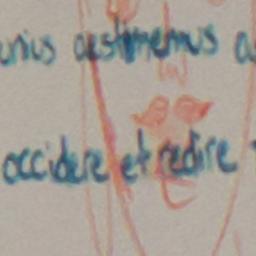 unius aestimemus a
occidere et redire